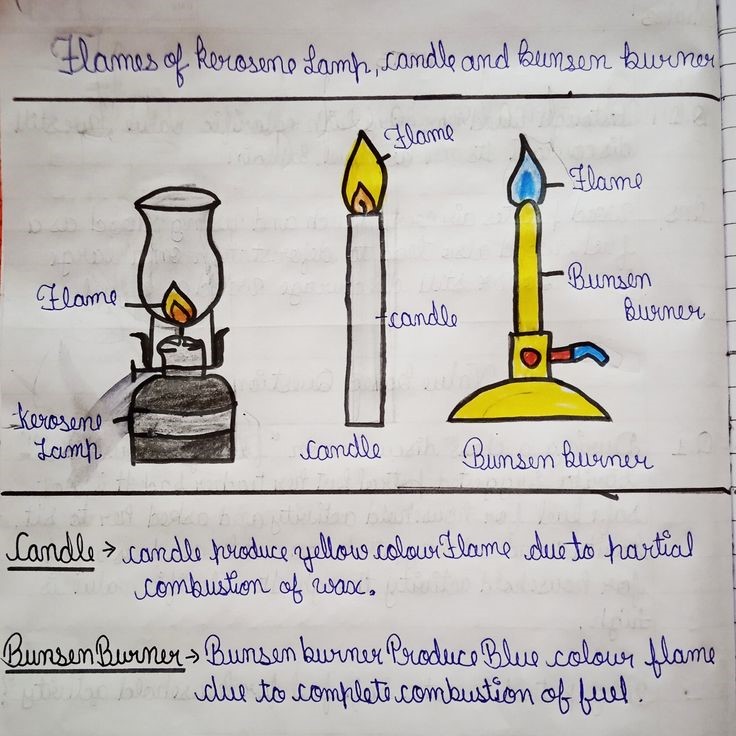 Flames of kerosene Lamp, candle and Bunsen burner
Flame
Flame
Flame
Bunsen
burner
candle
kerosene
Lamp
candle
Bunsen burner
Candle → candle produce yellow colour Flame due to partial
combustion of wax.
Bunsen Burner → Bunsen burner Produce Blue colour flame
due to complete combustion of fuel.